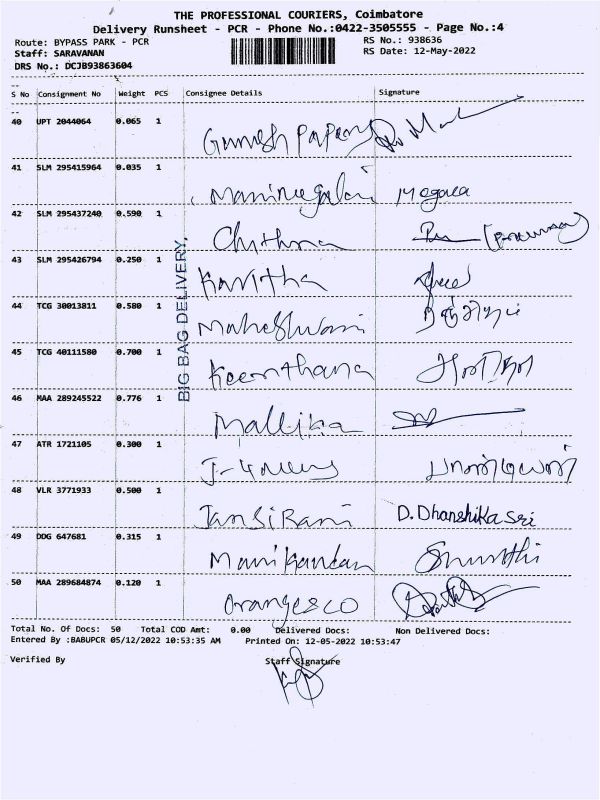 THE PROFESSIONAL COURIERS, Coimbatore
Delivery Runsheet - PCR - Phone No.:0422-3505555 - Page No.:4
Route: BYPASS PARK - PCR RS No.: 938636
Staff: SARAVANAN RS Date: 12-May-2022
DRS No.: DCJB93863604
S No Consignment No Weight PCS Consignee Details Signature
40 UPT 2044064 0.065 1 Ganesh Papers
41 SLM 295415964 0.035 1 Manimegalai Megala
42 SLM 295437240 0.590 1 Chithra
43 SLM 295426794 0.250 1 Kavitha
44 TCG 30013811 0.580 1 Maheshwari
45 TCG 40111580 0.700 1 Keerthana
46 MAA 289245522 0.776 1 Mallika
47 ATR 1721105 0.300 1
48 VLR 3771933 0.500 1 Jansi Rani D. Dhanshika Sri
49 DDG 647681 0.315 1 Manikandan Shruthi
50 MAA 289684874 0.120 1 Orangesco
BIG BAG DELIVERY,
Total No. Of Docs: 50 Total COD Amt: 0.00 Delivered Docs: Non Delivered Docs:
Entered By :BABUPCR 05/12/2022 10:53:35 AM Printed On: 12-05-2022 10:53:47
Verified By Staff Signature